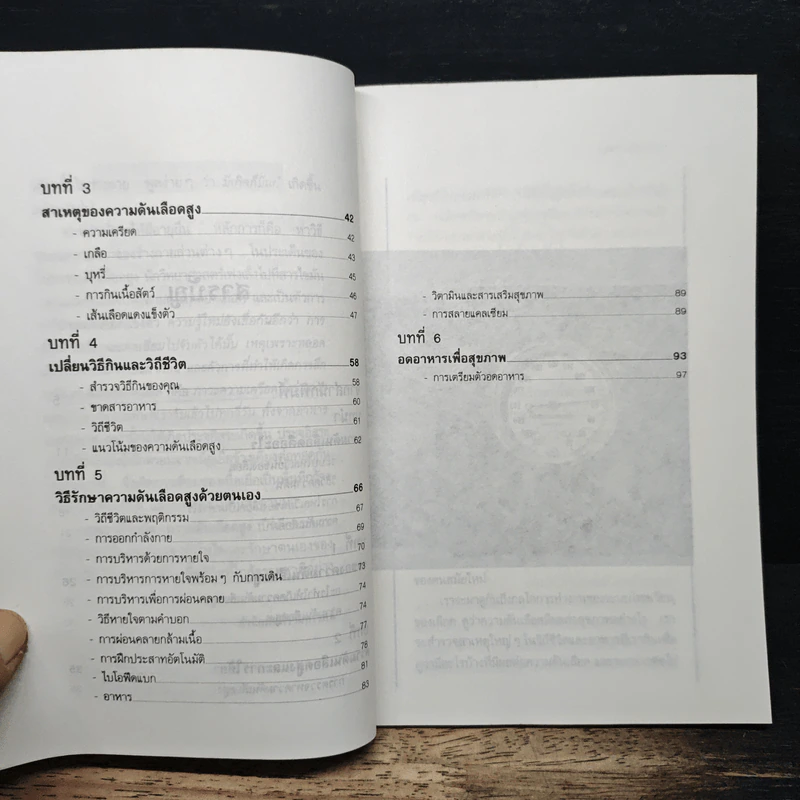 บทที่ 3
สาเหตุของความดันเลือดสูง 42
- ความเครียด 42
- เกลือ 43
- บุหรี่ 45
- การกินเนื้อสัตว์ 46
- เส้นเลือดแดงแข็งตัว 47
บทที่ 4
เปลี่ยนวิธีกินและวิถีชีวิต 58
- สำรวจวิธีกินของคุณ 58
- ขาดสารอาหาร 60
- วิถีชีวิต 61
- แนวโน้มของความดันเลือดสูง 62
บทที่ 5
วิธีรักษาความดันเลือดสูงด้วยตนเอง 66
- วิถีชีวิตและพฤติกรรม 67
- การออกกำลังกาย 69
- การบริหารด้วยการหายใจ 70
- การบริหารการหายใจพร้อมๆ กับการเดิน 73
- การบริหารเพื่อการผ่อนคลาย 74
- วิธีหายใจตามคำบอก 74
- การผ่อนคลายกล้ามเนื้อ 76
- การฝึกประสาทอัตโนมัติ 78
- ไบโอฟีดแบก 81
- อาหาร 83
- วิตามินและสารเสริมสุขภาพ 89
- การสลายแคลเซียม 89
บทที่ 6
อดอาหารเพื่อสุขภาพ 93
- การเตรียมตัวอดอาหาร 97